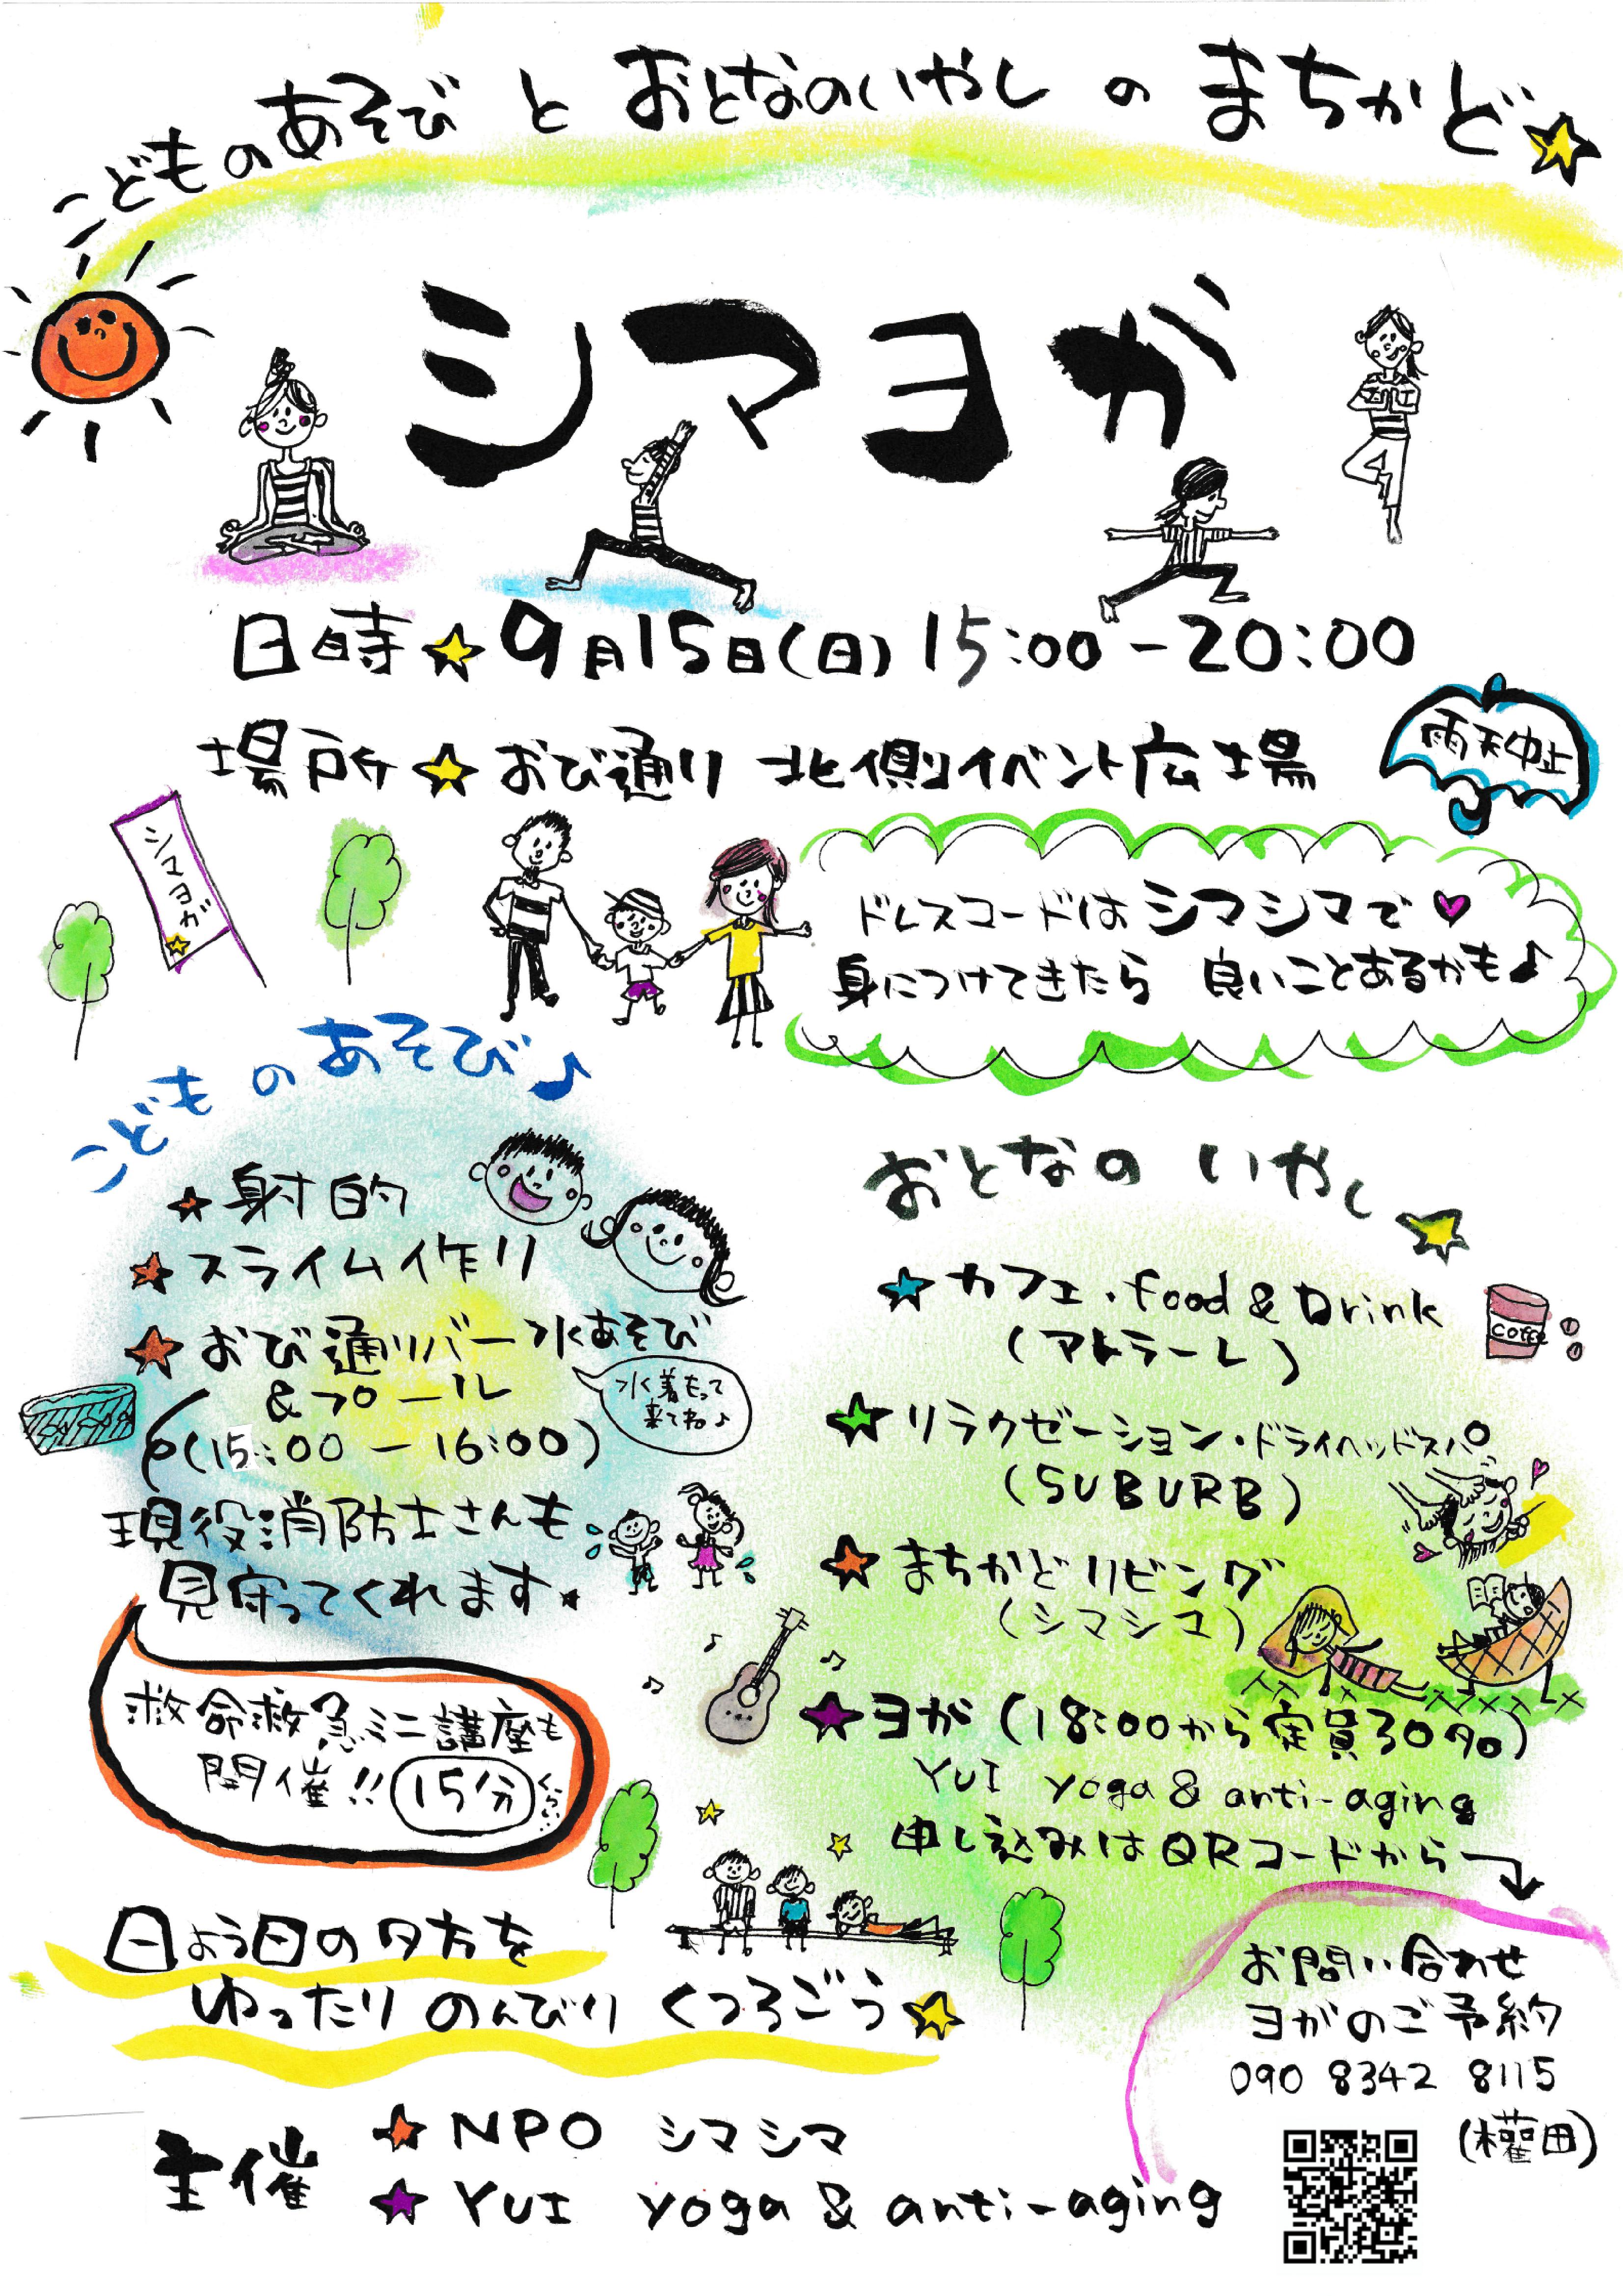 こどものあそび と おとなのいやし の まちかど
シマヨガ
日時 9月15日(日) 15:00-20:00
場所 おび通り 北側イベント広場
雨天中止
シマヨガ
ドレスコードは シマシマで
身につけてきたら 良いことあるかも♪
こどものあそび♪
射的
スライム作り
おび通りリバー水あそび
&プール
(15:00-16:00)
水着もって
来てね♪
現役消防士さんも
見守ってくれます
救命救急ミニ講座も
開催!! 15分くらい
おとなの いやし
カフェ・food & Drink
(アトラーレ)
coffe
リラクゼーション・ドライヘッドスパ
(SUBURB)
まちかどリビング
(シマシコ)
ヨガ (18:00から定員30名)
YUI yoga & anti-aging
申し込みはQRコードから
日よう日の夕方を
ゆったり のんびり くつろごう
お問い合わせ
ヨガのご予約
090 8342 8115
(權田)
主催 NPO シマシマ
YUI yoga & anti-aging